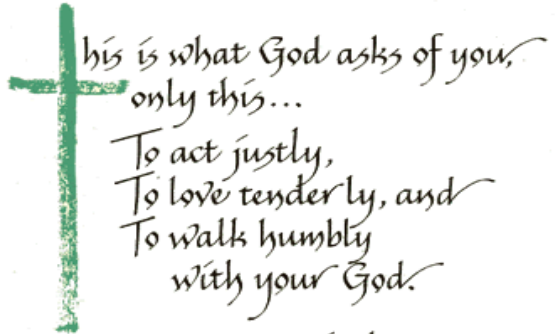 This is what God asks of you,
only this...
To act justly,
To love tenderly, and
To walk humbly
with your God.